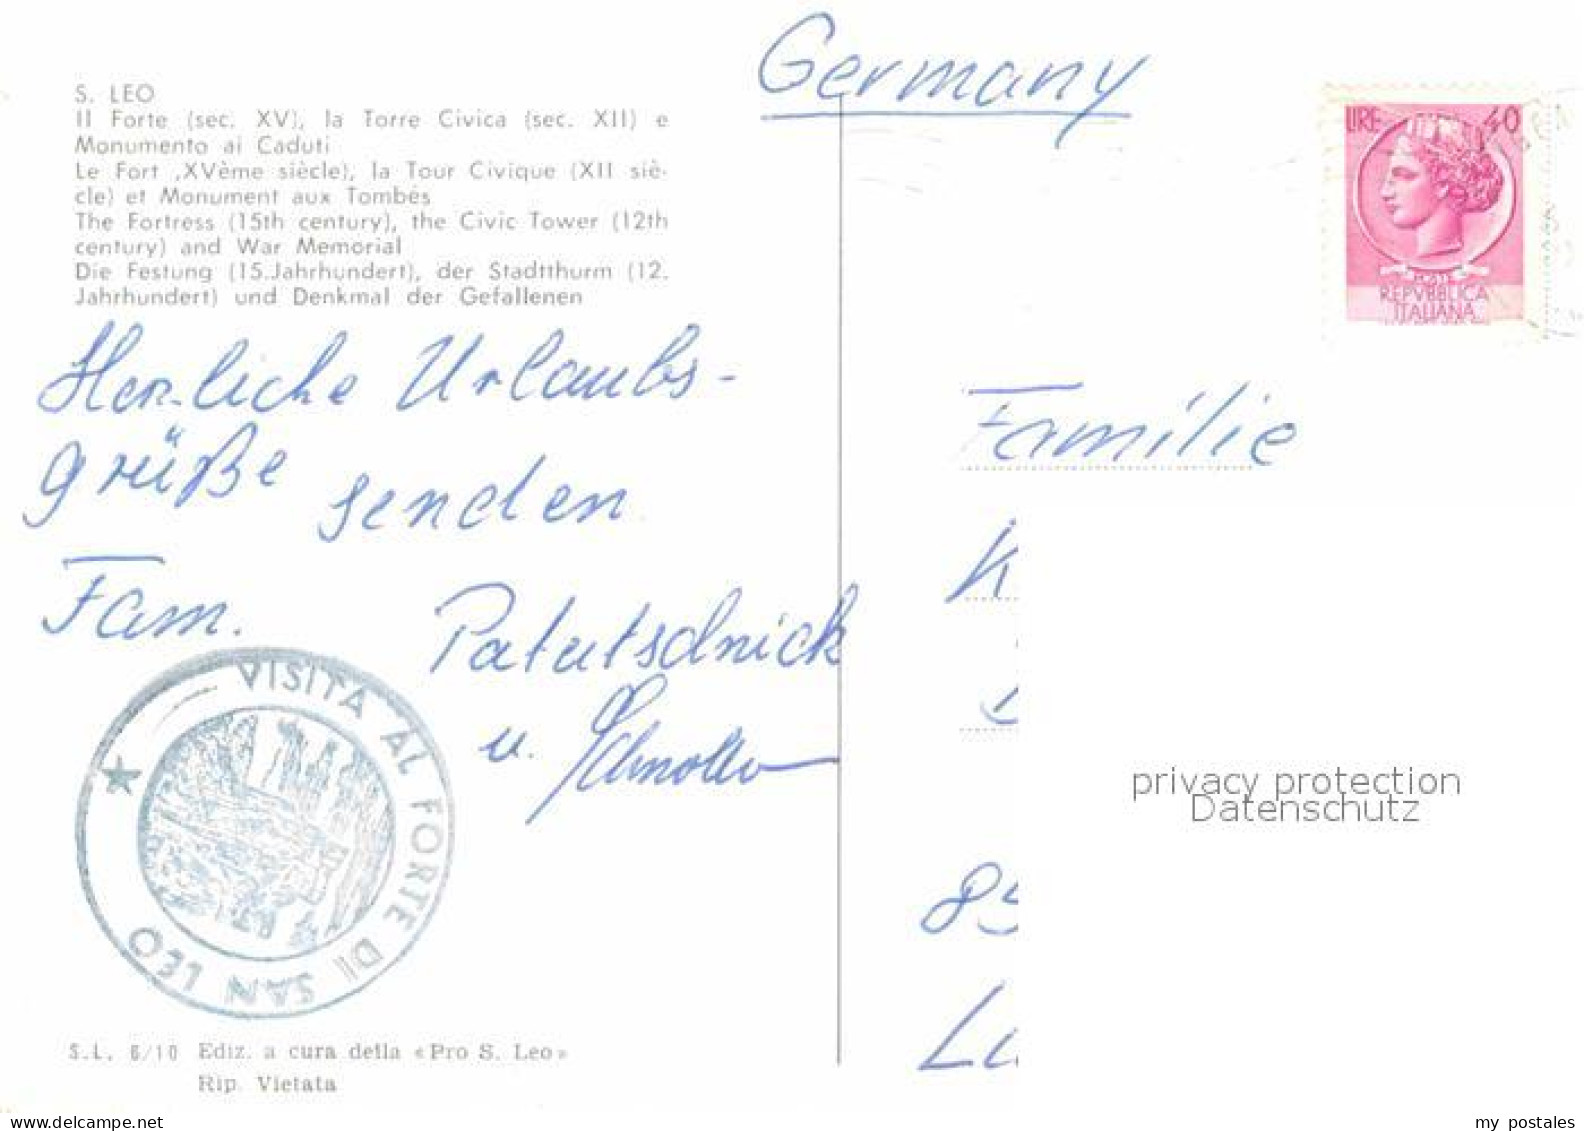 Germany
S. LEO
Il Forte (sec. XV), la Torre Civica (sec. XII) e
Monumento ai Caduti
Le Fort ,XVème siècle), la Tour Civique (XII siè-
cle) et Monument aux Tombés
The Fortress (15th century), the Civic Tower (12th
century) and War Memorial
Die Festung (15.Jahrhundert), der Stadtthurm (12.
Jahrhundert) und Denkmal der Gefallenen
LIRE 40
POSTE
REPVBBLICA
ITALIANA
Herzliche Urlaubs-
grüße senden
Fam. Patutschnick
u.
VISITA AL FORTE DI SAN LEO
S.L. 6/10 Ediz. a cura della «Pro S. Leo»
Rip. Vietata
Familie
K
85
privacy protection
Datenschutz
www.delcampe.net
my postales